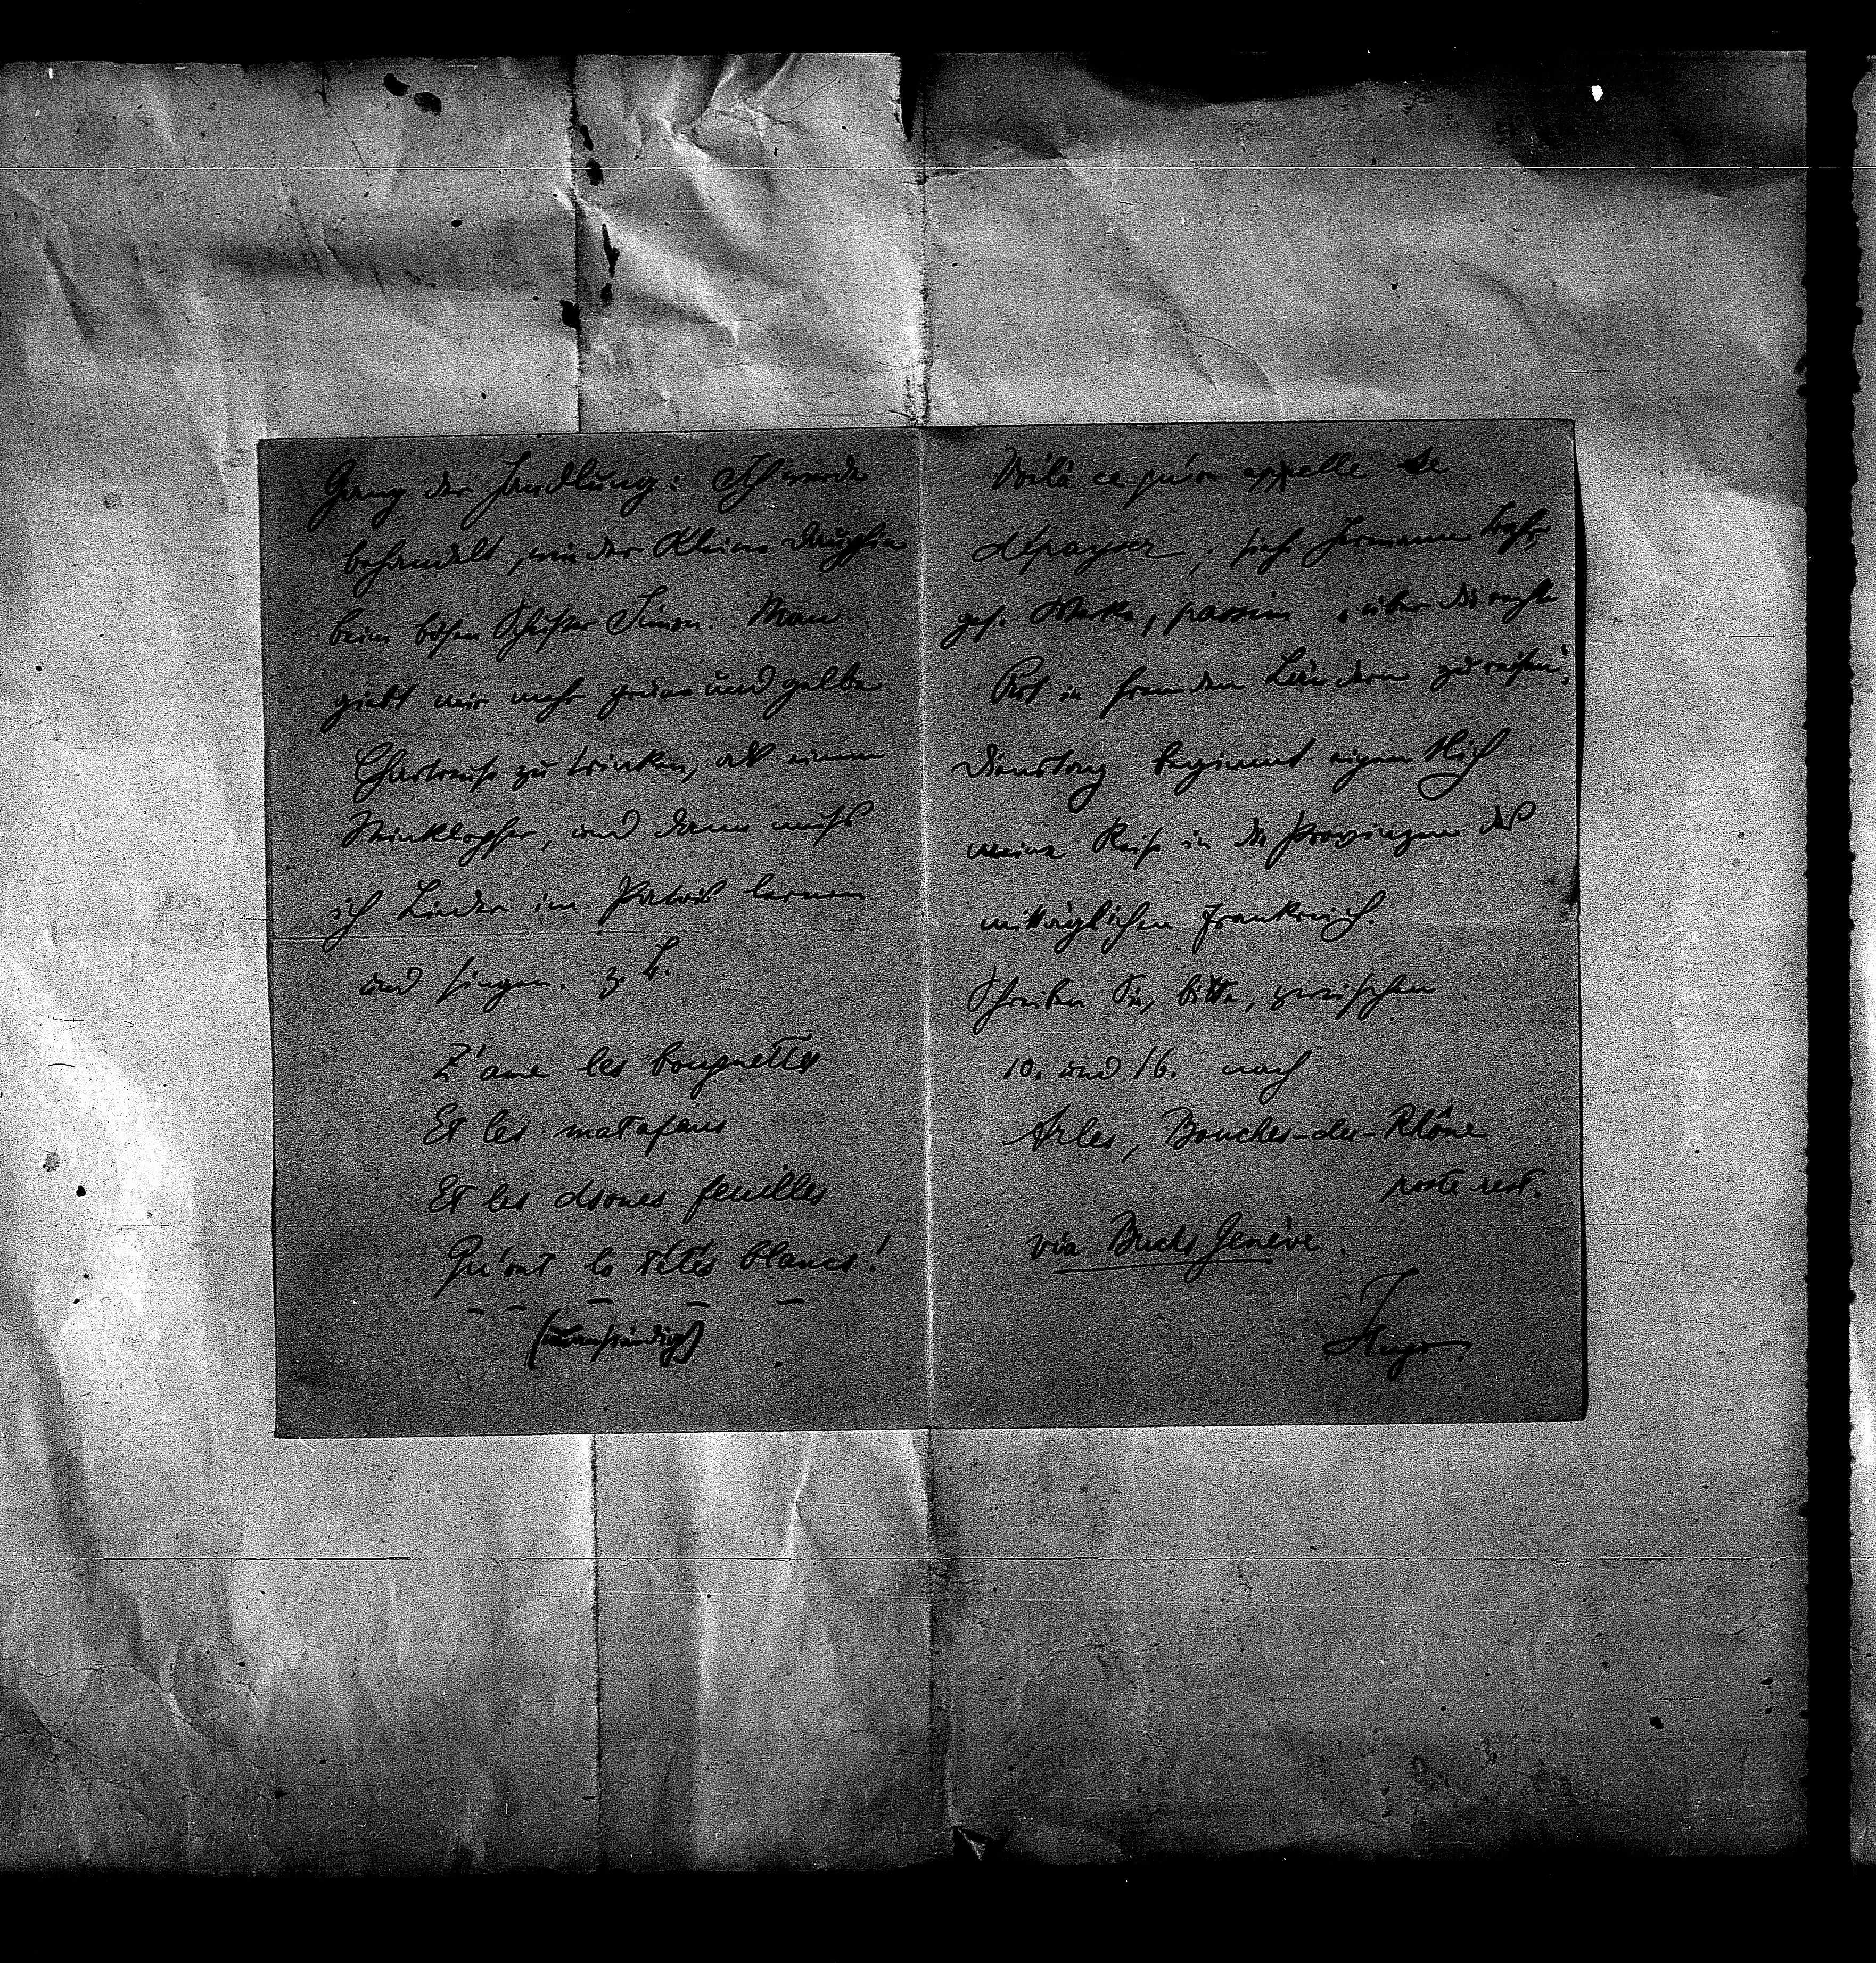 Gang der Handlung: Ich werde
behandelt, wie der kleine Dauphin
beim bösen Schuster Simon. Man
giebt mir mehr grüne und gelbe
Chartreuse zu trinken, als einem
Steinklopfer, und dann muss
ich Lieder im Patois lernen
und singen. z. B.
Z'ame les bougnettes
Et les matafans
Et les dsones feuilles
Qu'ont lo tétés blancs!
(unanständig!)
Voilà ce qu'on appelle se
dépayser, siehe Hermann Bahr,
ges. Werke, passim, „über die rechte
Art in fremden Ländern zu reisen“.
Dienstag beginnt eigentlich
meine Reise in die Provinzen des
mittäglichen Frankreich.
Schreiben Sie, bitte, zwischen
10. und 16. nach
Arles, Bouches-du-Rhône
poste rest.
via Buchs Genève.
Hugo.